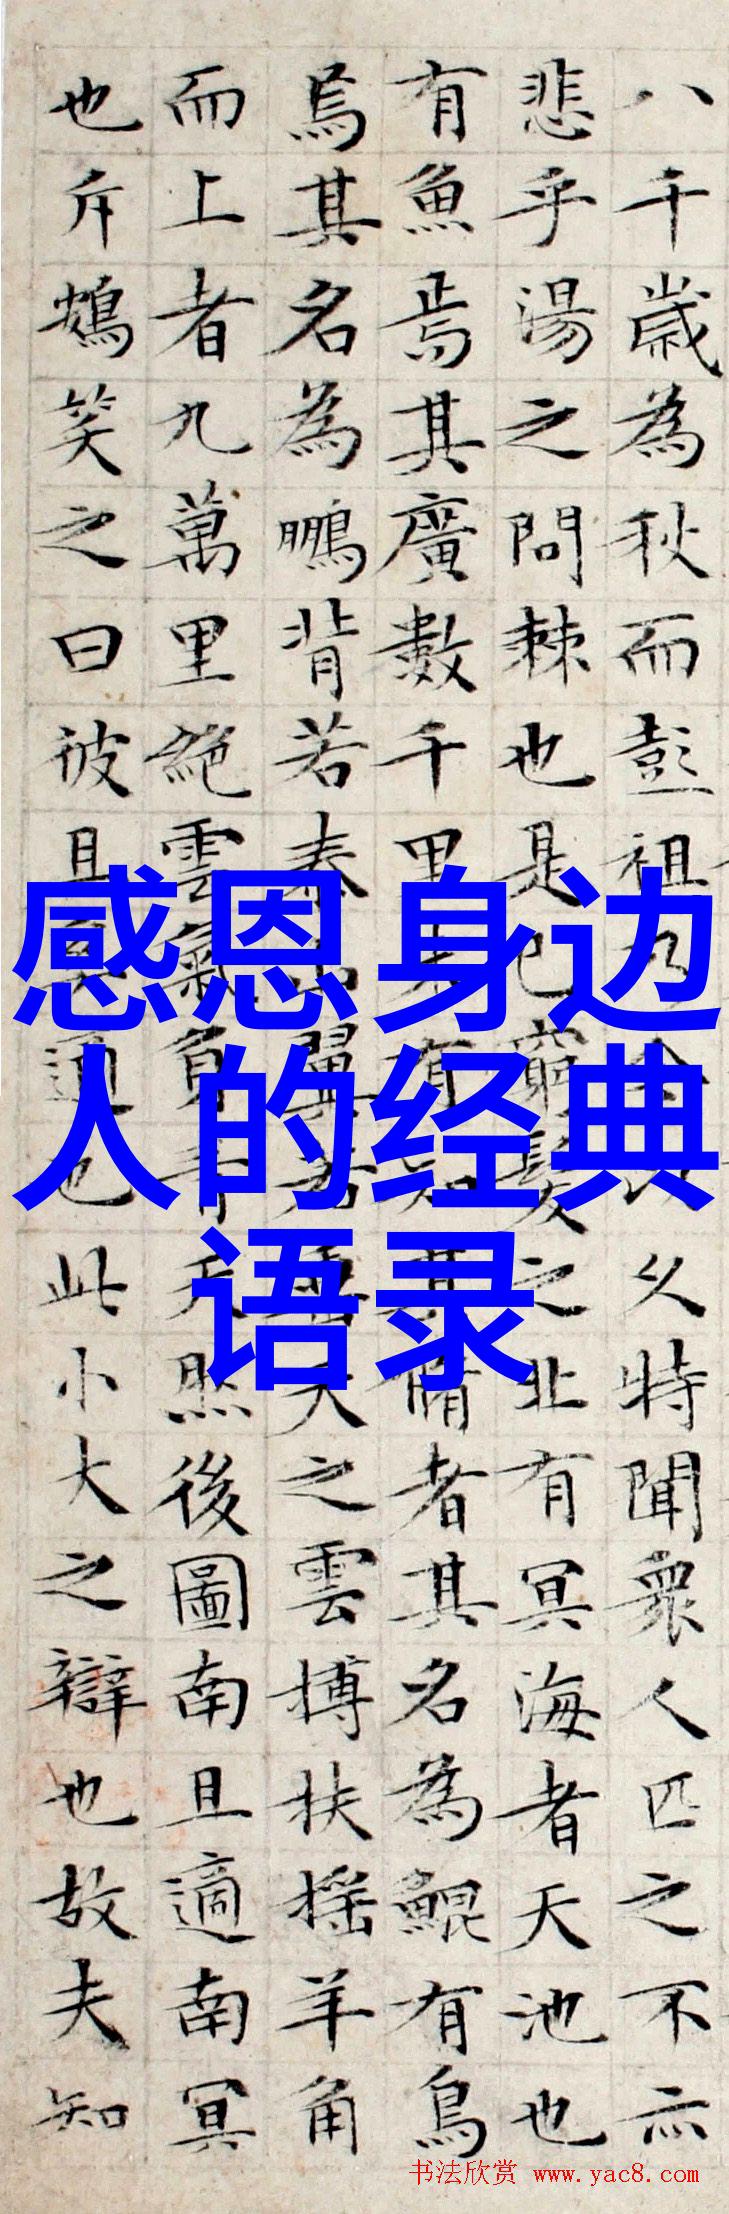 八千歲為秋而彭祖乃今以久特聞衆人匹之不亦
悲乎湯之問棘也是已窮髮之北有冥海者天池也
有魚焉其廣數千里未有知其脩者其名為鯤有鳥
焉其名為鵬背若泰山翼若垂天之雲搏扶搖羊角
而上者九萬里絕雲氣負青天然後圖南且適南冥
也斥鴳笑之曰彼且奚適也此小大之辯也故夫知
感恩身边
人的经典
语录
书法欣赏 www.yac8.com